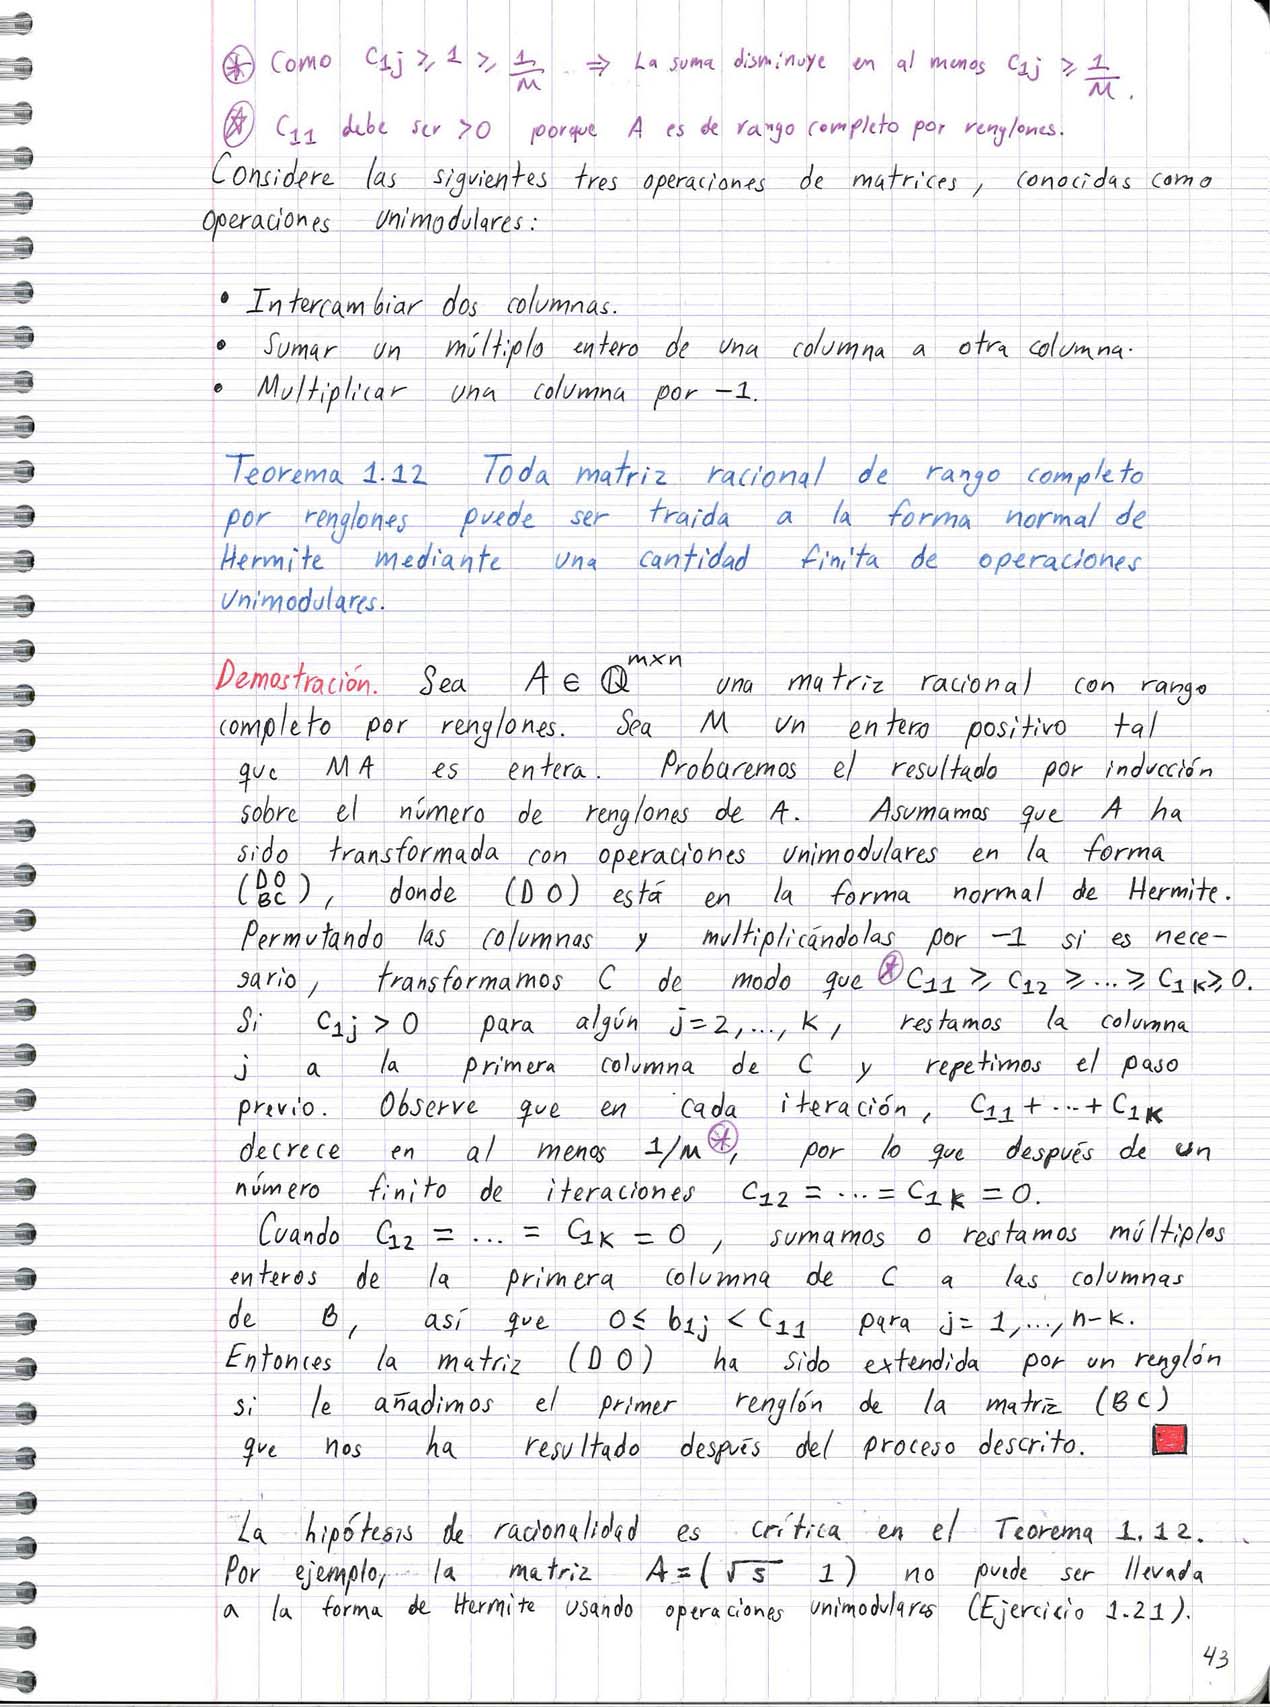 ⊛ Como C₁ⱼ ≥ 1 ≥ 1/M ⇒ La suma disminuye en al menos C₁ⱼ ≥ 1/M.
⍟ C₁₁ debe ser >0 porque A es de rango completo por renglones.
Considere las siguientes tres operaciones de matrices, conocidas como
operaciones unimodulares:
• Intercambiar dos columnas.
• Sumar un múltiplo entero de una columna a otra columna.
• Multiplicar una columna por -1.
Teorema 1.12 Toda matriz racional de rango completo
por renglones puede ser traida a la forma normal de
Hermite mediante una cantidad finita de operaciones
unimodulares.
Demostración. Sea A ∈ ℚ^{m×n} una matriz racional con rango
completo por renglones. Sea M un entero positivo tal
que MA es entera. Probaremos el resultado por inducción
sobre el número de renglones de A. Asumamos que A ha
sido transformada con operaciones unimodulares en la forma
(D 0
B C), donde (D 0) está en la forma normal de Hermite.
Permutando las columnas y multiplicándolas por -1 si es nece-
sario, transformamos C de modo que ⍟ C₁₁ ≥ C₁₂ ≥ ... ≥ C₁ₖ ≥ 0.
Si C₁ⱼ > 0 para algún j=2,..., k, restamos la columna
j a la primera columna de C y repetimos el paso
previo. Observe que en cada iteración, C₁₁ + ... + C₁ₖ
decrece en al menos 1/M ⊛, por lo que después de un
número finito de iteraciones C₁₂ = ... = C₁ₖ = 0.
Cuando C₁₂ = ... = C₁ₖ = 0, sumamos o restamos múltiplos
enteros de la primera columna de C a las columnas
de B, así que 0 ≤ b₁ⱼ < C₁₁ para j= 1,..., n-k.
Entonces la matriz (D 0) ha sido extendida por un renglón
si le añadimos el primer renglón de la matriz (B C)
que nos ha resultado después del proceso descrito.
La hipótesis de racionalidad es crítica en el Teorema 1.12.
Por ejemplo, la matriz A = (√5 1) no puede ser llevada
a la forma de Hermite usando operaciones unimodulares (Ejercicio 1.21).
43